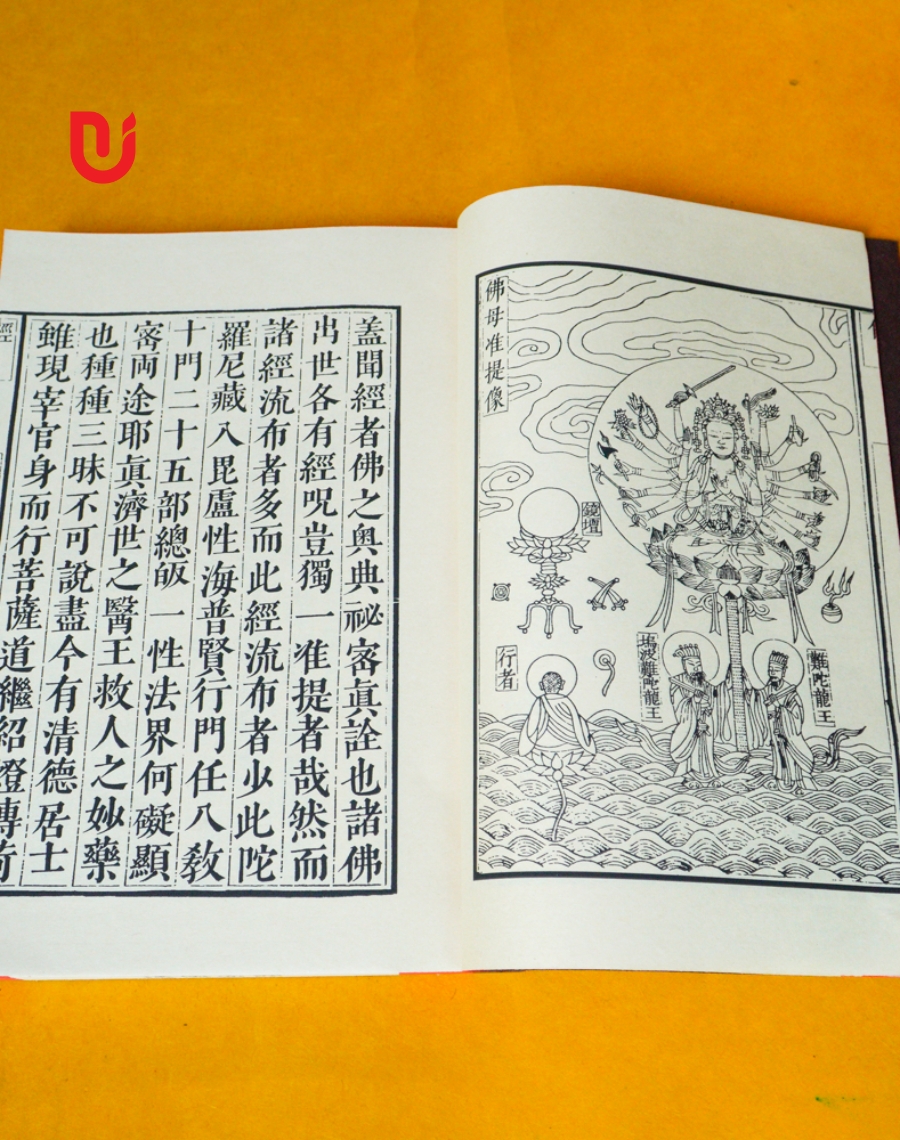 佛母准提像
鏡壇
難陀龍王
塢波難陀龍王
行者
蓋聞經者佛之奧典祕宻眞詮也諸佛
出世各有經呪豈獨一准提者哉然而
諸經流布者多而此經流布者少此陀
羅尼藏入毘盧性海普賢行門任八敎
十門二十五部總皈一性法界何礙顯
宻両途耶眞濟世之醫王救人之妙藥
也種種三昧不可說盡今有清德居士
雖現宰官身而行菩薩道繼紹燈傳